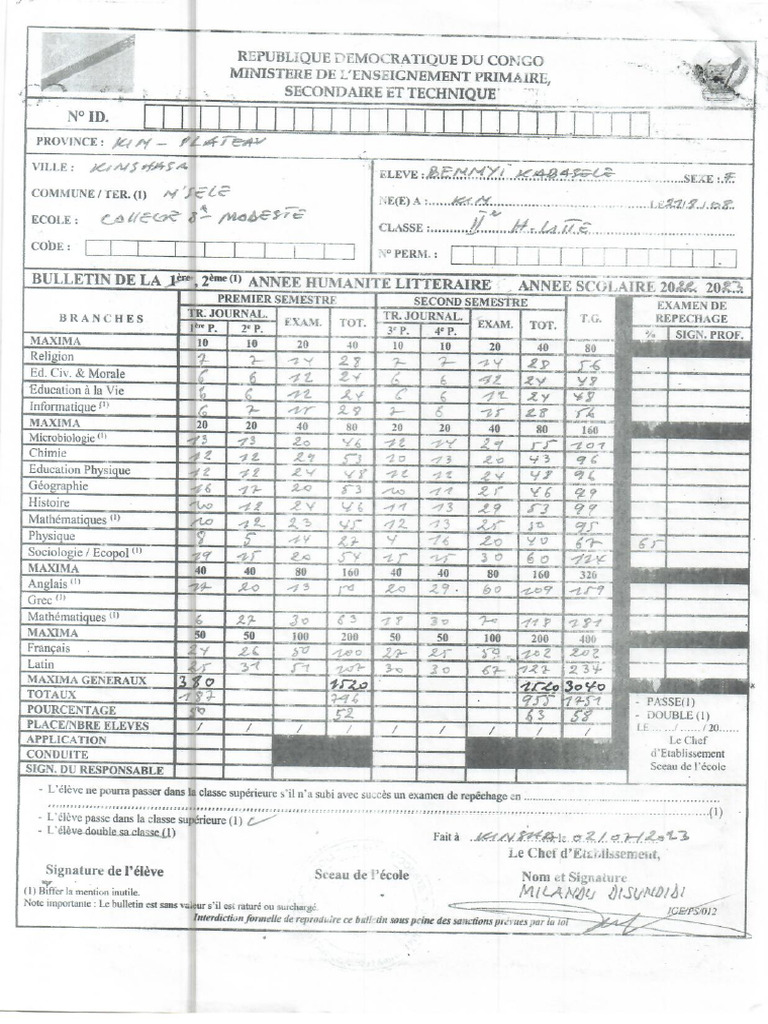 REPUBLIQUE DEMOCRATIQUE DU CONGO
MINISTERE DE L'ENSEIGNEMENT PRIMAIRE,
SECONDAIRE ET TECHNIQUE
N° ID.
PROVINCE : KIN - PLATEAU
VILLE : KINSHASA
COMMUNE / TER. (1) M'SELE
ECOLE : COLLEGE St MODESTE
CODE :
ELEVE : BEMMYI KABASELE SEXE : F
NE(E) A : KIN LE
CLASSE : H. LITTE
N° PERM. :
BULLETIN DE LA 1ère, 2ème (1) ANNEE HUMANITE LITTERAIRE ANNEE SCOLAIRE 2022 2023
BRANCHES PREMIER SEMESTRE SECOND SEMESTRE T.G. EXAMEN DE REPECHAGE
TR. JOURNAL. EXAM. TOT. TR. JOURNAL. EXAM. TOT.
1ère P. 2e P. 3e P. 4e P. % SIGN. PROF.
MAXIMA 10 10 20 40 10 10 20 40 80
Religion 7 7 14 28 7 7 14 28 56
Ed. Civ. & Morale 6 6 12 24 6 6 12 24 48
Education à la Vie 6 6 12 24 6 6 12 24 48
Informatique (1) 6 7 15 28 7 6 15 28 56
MAXIMA 20 20 40 80 20 20 40 80 160
Microbiologie (1) 13 13 20 46 12 14 29 55 101
Chimie 12 12 29 53 10 13 20 43 96
Education Physique 12 12 24 48 12 12 24 48 96
Géographie 16 17 20 53 10 11 25 46 99
Histoire 10 12 24 46 11 13 29 53 99
Mathématiques (1) 10 12 23 45 12 13 25 50 95
Physique 8 5 14 27 4 16 20 40 67 65
Sociologie / Ecopol (1) 19 15 20 54 15 15 30 60 114
MAXIMA 40 40 80 160 40 40 80 160 320
Anglais (1) 17 20 13 50 20 29 60 109 159
Grec (1)
Mathématiques (1) 6 27 30 63 18 30 70 118 181
MAXIMA 50 50 100 200 50 50 100 200 400
Français 24 26 50 100 27 25 50 102 202
Latin 25 31 51 107 30 30 67 127 234
MAXIMA GENERAUX 380 1520 1520 3040
TOTAUX 187 796 955 1751
POURCENTAGE 50 52 63 58
PLACE/NBRE ELEVES / / / / / / / / /
APPLICATION
CONDUITE
SIGN. DU RESPONSABLE
- PASSE(1)
- DOUBLE (1)
LE ...../...../20......
Le Chef
d'Etablissement
Sceau de l'école
- L'élève ne pourra passer dans la classe supérieure s'il n'a subi avec succès un examen de repêchage en
(1)
- L'élève passe dans la classe supérieure (1)
- L'élève double sa classe (1)
Fait à KINSHA le 02/07/2023
Le Chef d'Etablissement,
Signature de l'élève Sceau de l'école Nom et Signature
MILANDU DISUNDIDI
(1) Biffer la mention inutile.
Note importante : Le bulletin est sans valeur s'il est raturé ou surchargé.
IGE/PS/012
Interdiction formelle de reproduire ce bulletin sous peine des sanctions prévues par la loi